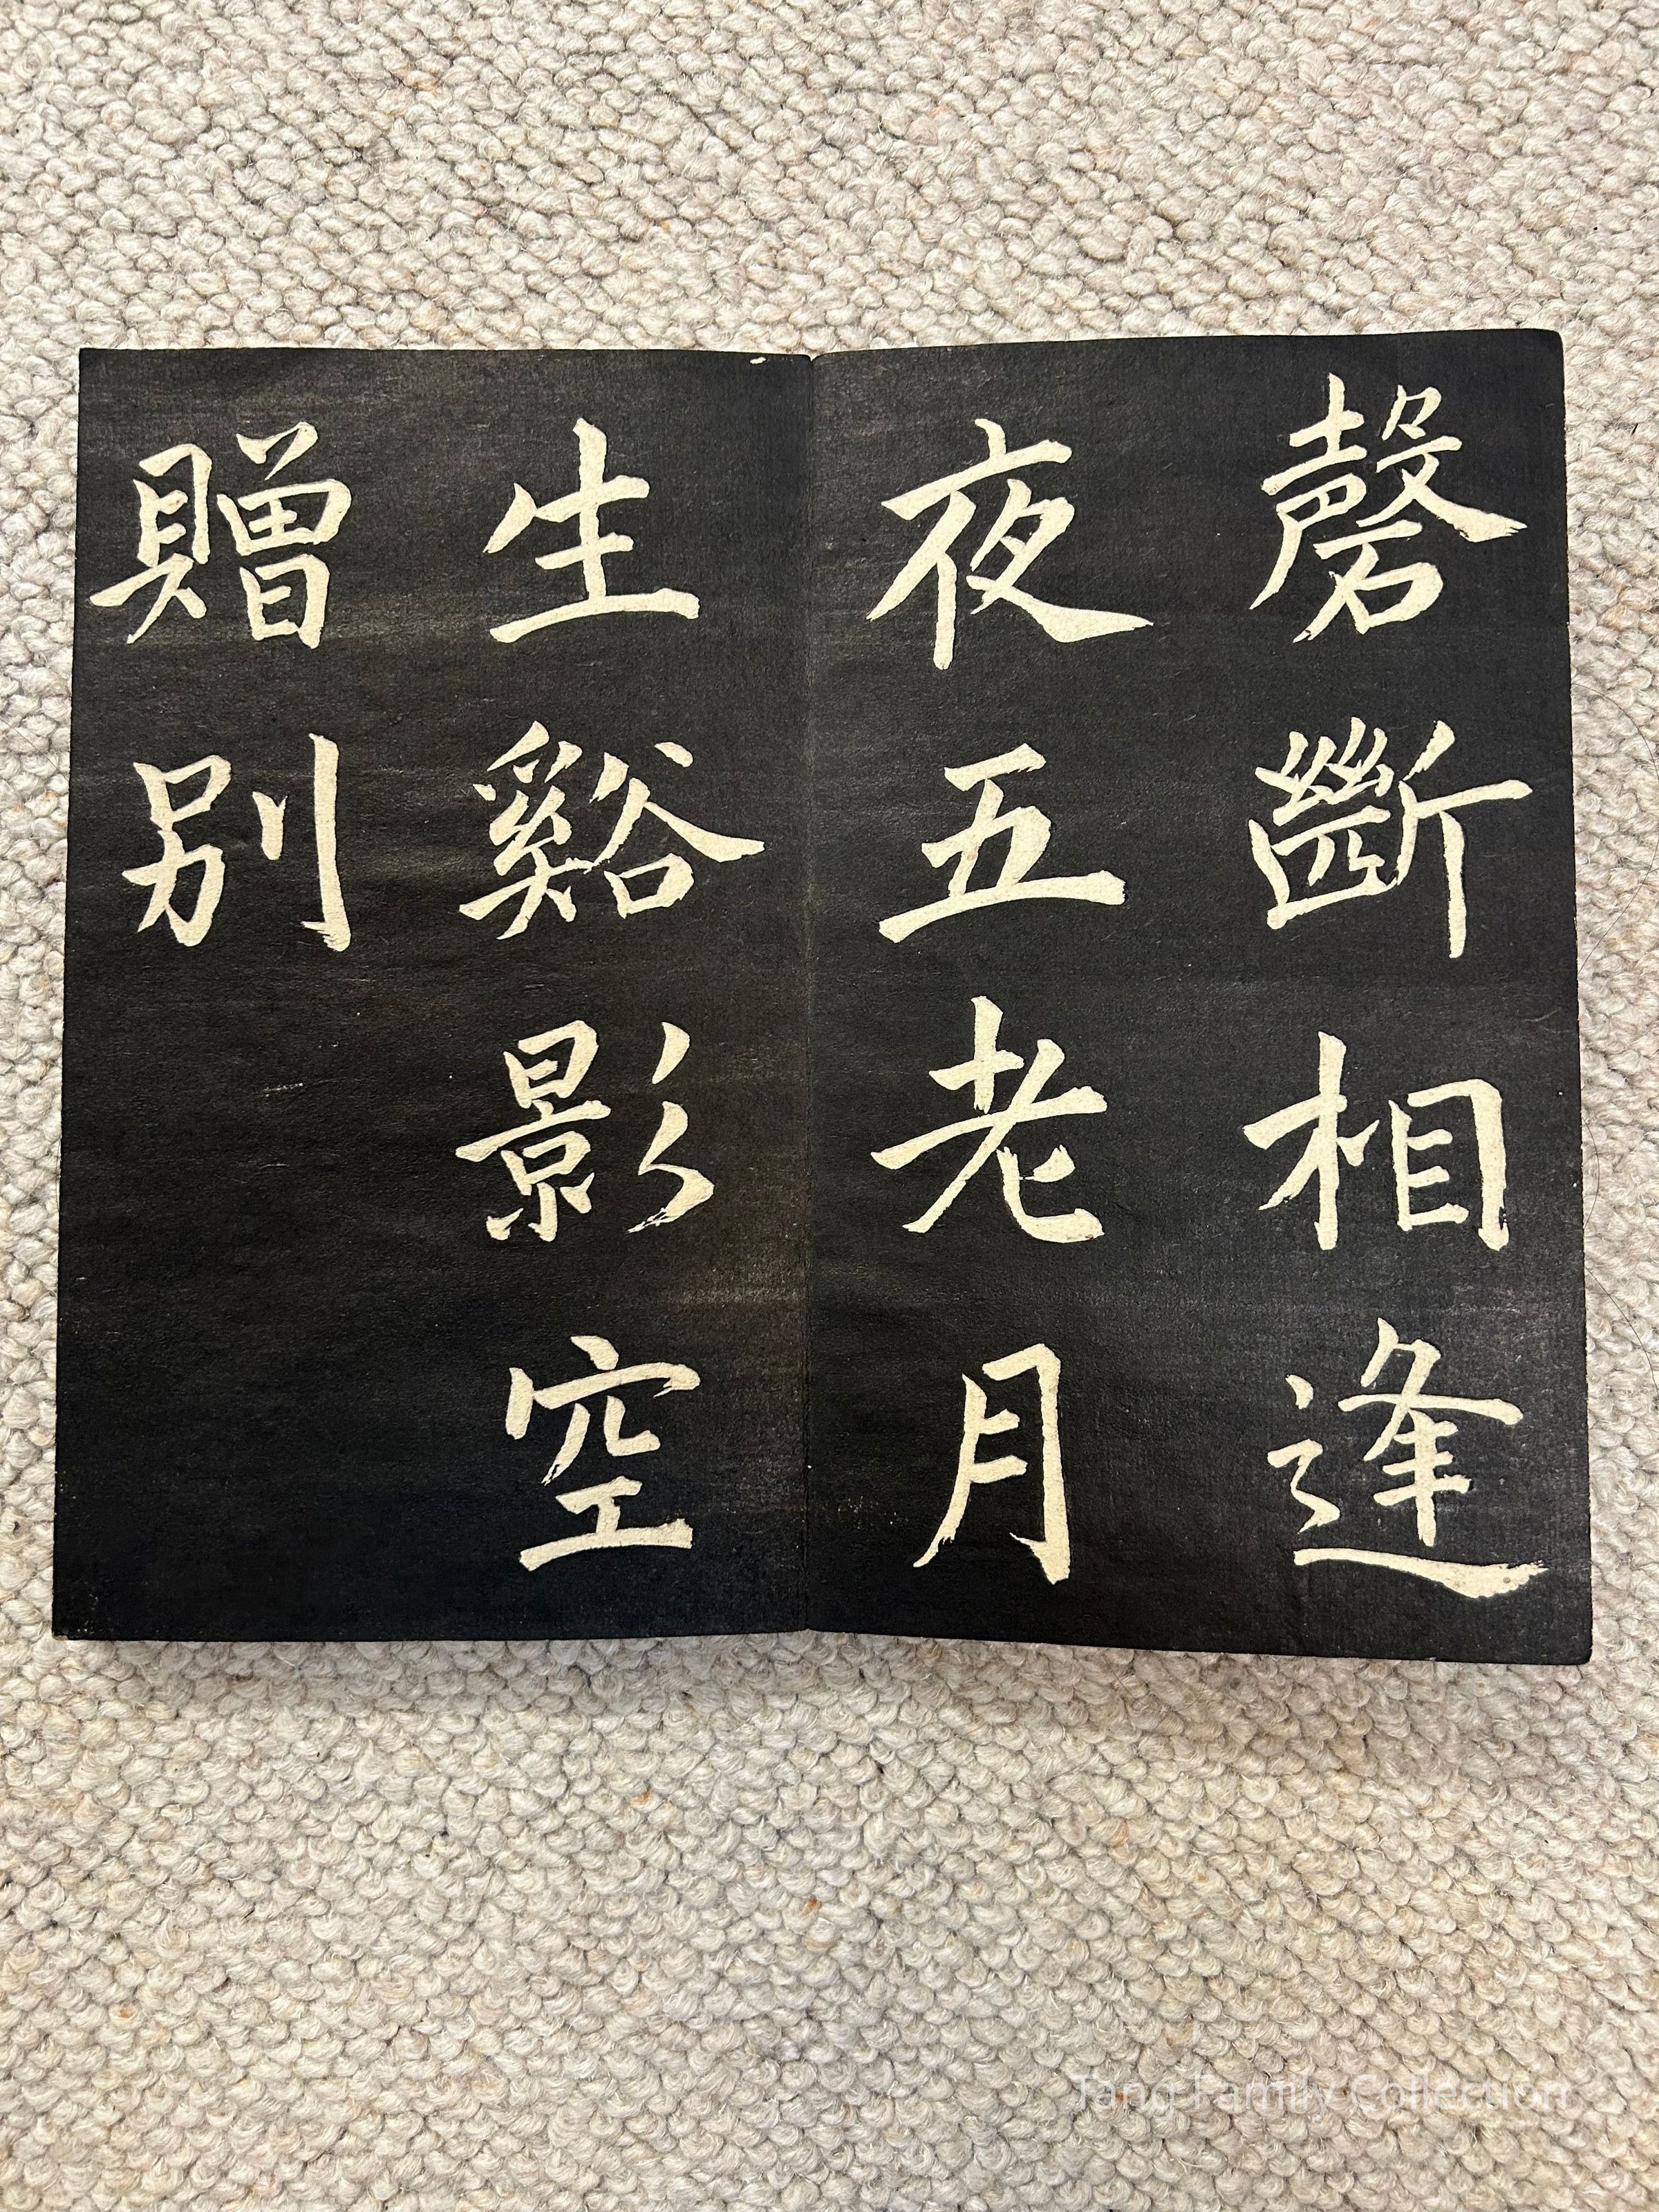 磬斷相逢
夜五老月
生谿影空
贈别
Tang Family Collection